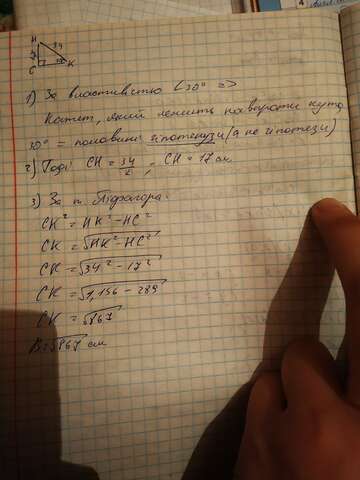 H
34
30°
C K
1) За властивістю ∠30° =>
Катет, який лежить навпроти кута
30° = половині гіпотенузи (а не гіпотези)
2) Тоді CH = 34/2; CH = 17 см
3) За т. Піфагора:
CK² = HK² - HC²
CK = √HK² - HC²
CK = √34² - 17²
CK = √1,156 - 289
CK = √867
В: √867 см